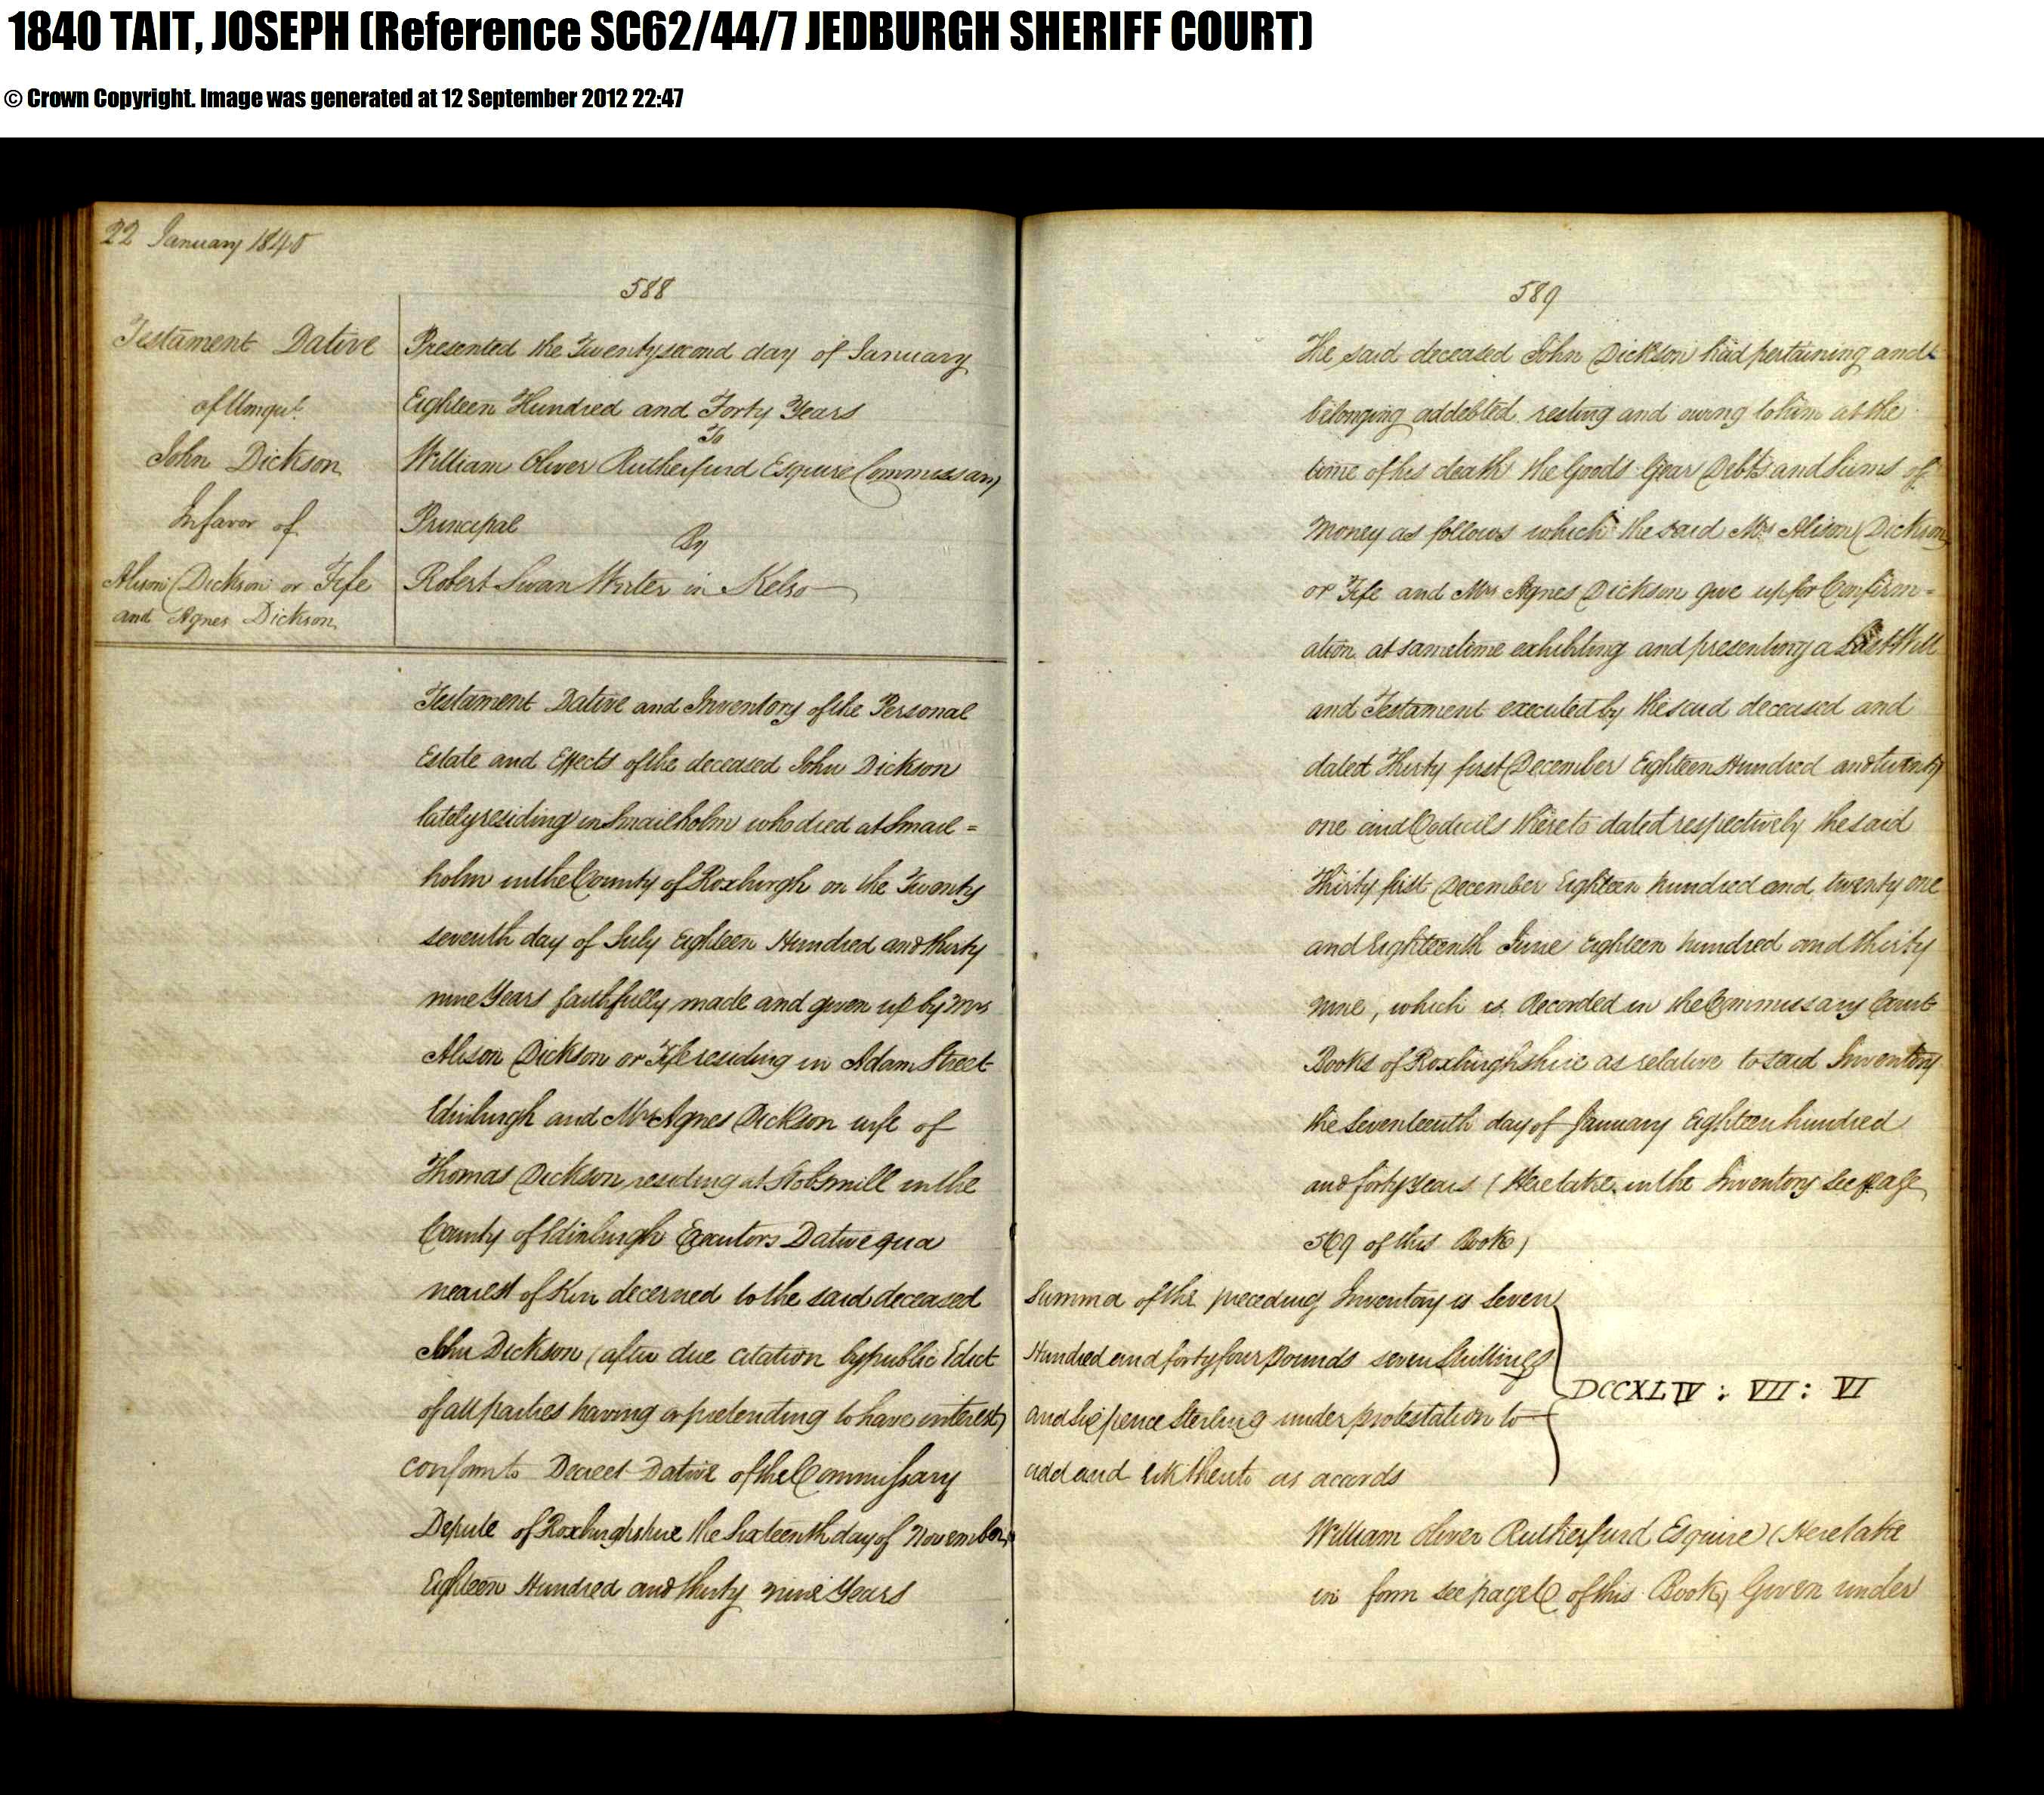 1840 TAIT, JOSEPH (Reference SC62/44/7 JEDBURGH SHERIFF COURT)
© Crown Copyright. Image was generated at 12 September 2012 22:47
22 January 1840
588
Testament Dative
of Umqut
John Dickson
In favor of
Alison Dickson or Fife
and Agnes Dickson
Presented the Twenty second day of January
Eighteen Hundred and Forty Years
To
William Oliver Rutherfurd Esquire Commissary
Principal
By
Robert Swan Writer in Kelso
Testament Dative and Inventory of the Personal
Estate and Effects of the deceased John Dickson
lately residing in Smailholm who died at Smail=
holm in the County of Roxburgh on the Twenty
seventh day of July Eighteen Hundred and thirty
nine Years faithfully made and given up by Mrs
Alison Dickson or Fife residing in Adam Street
Edinburgh and Mrs Agnes Dickson wife of
Thomas Dickson residing at Stobsmill in the
County of Edinburgh Executors Dative qua
nearest of Kin decerned to the said deceased
John Dickson (after due citation by public Edict
of all parties having or pretending to have interest)
conform to Decreet Dative of the Commissary
Depute of Roxburghshire the Sixteenth day of November
Eighteen Hundred and thirty nine Years
589
The said deceased John Dickson had pertaining and
belonging addebted resting and owing to him at the
time of his death the Goods Gear Debts and Sums of
Money as follows which the said Mrs Alison Dickson
or Fife and Mrs Agnes Dickson give up for Confirm=
ation at sametime exhibiting and presenting a Last Will
and Testament executed by the said deceased and
dated Thirty first December Eighteen Hundred and twenty
one and Codicils thereto dated respectively the said
Thirty first December Eighteen hundred and twenty one
and Eighteenth June Eighteen hundred and thirty
nine, which is Recorded in the Commissary Court
Books of Roxburghshire as relative to said Inventory
the Seventeenth day of January Eighteen hundred
and forty years (Here take in the Inventory see page
569 of this Book)
Summa of the preceding Inventory is Seven
Hundred and forty four Pounds seven Shillings
and Six pence Sterling under protestation to
add and eik thereto as accords
DCCXLIV : VII : VI
William Oliver Rutherfurd Esquire (Here take
in form see page of this Book) Given under